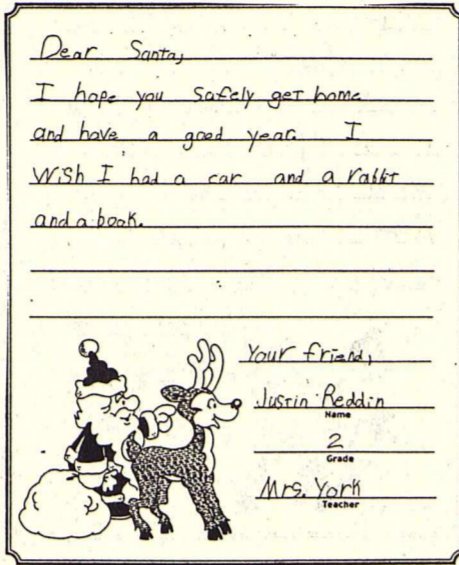 Dear Santa,
I hope you safely get home
and have a good year. I
wish I had a car and a rabbit
and a book.
Your friend,
Justin Reddin
Name
2
Grade
Mrs. York
Teacher